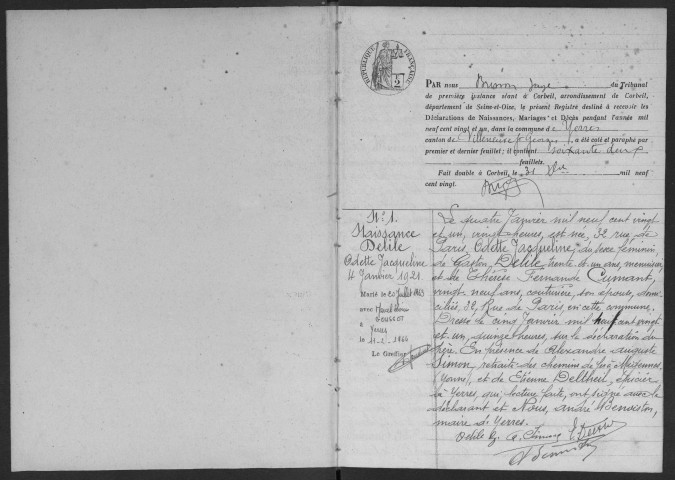 RÉPUBLIQUE FRANÇAISE
2
PAR nous du Tribunal
de première instance séant à Corbeil, arrondissement de Corbeil,
département de Seine-et-Oise, le présent Registre destiné à recevoir les
Déclarations de Naissances, Mariages et Décès pendant l'année mil
neuf cent vingt et un, dans la commune de Yerres
canton de Villeneuve St Georges, a été coté et paraphé par
premier et dernier feuillet; il contient soixante deux
feuillets.
Fait double à Corbeil, le 31 mil neuf
cent vingt.
N° 1.
Naissance
Delile
Odette Jacqueline
4 Janvier 1921
Marié le 20 Juillet 1963
avec
à
Yerres
le 11-2-1964
Le Greffier
Le quatre Janvier mil neuf cent vingt
et un, vingt heures, est née, 32 rue de
Paris, Odette Jacqueline, du sexe féminin,
de Gaston Delile, trente et un ans, menuisier,
et de Thérèse Fernande Cumant,
vingt neuf ans, couturière, son épouse, domi-
ciliés, 32, Rue de Paris, en cette commune.
Dressé le cinq Janvier mil neuf cent vingt
et un, quinze heures, sur la déclaration du
père. En présence de Alexandre Auguste
Simon, retraité des chemins de fer à
(Yonne), et de Etienne Deltheil, épicier
à Yerres, qui, lecture faite, ont signé avec le
déclarant et Nous, André Benoiston,
maire d'Yerres.
Delile G. A. Simon E. Deltheil